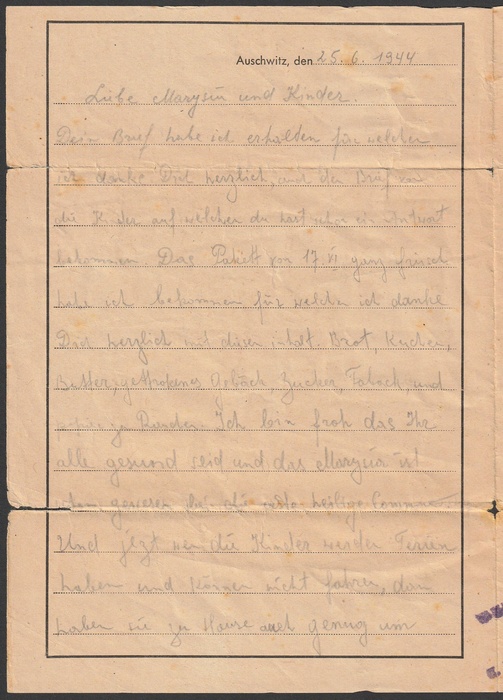 Auschwitz, den 25. 6. 1944
Liebe Marysiu und Kinder.
Dein Brief habe ich erhalden für welchen
ich danke Dich herzlich, und den Brief von
die Kinder auf welchen du hast schon ein Antwort
bekommen. Das Pakett von 17. VI ganz frisch
habe ich bekommen für welchen ich danke
Dich herzlich mit disen inhalt. Brot, Kuchen,
Butter, Gebäck, Zucker, Taback, und
zu Runden. Ich bin froh das Ihr
alle gesund seid und das Marysia ist
gewesen bei die erste heilige
Und jezt wen die Kinder werden Ferien
haben und können nicht fahren, dan
haben sie zu Hause auch genug um